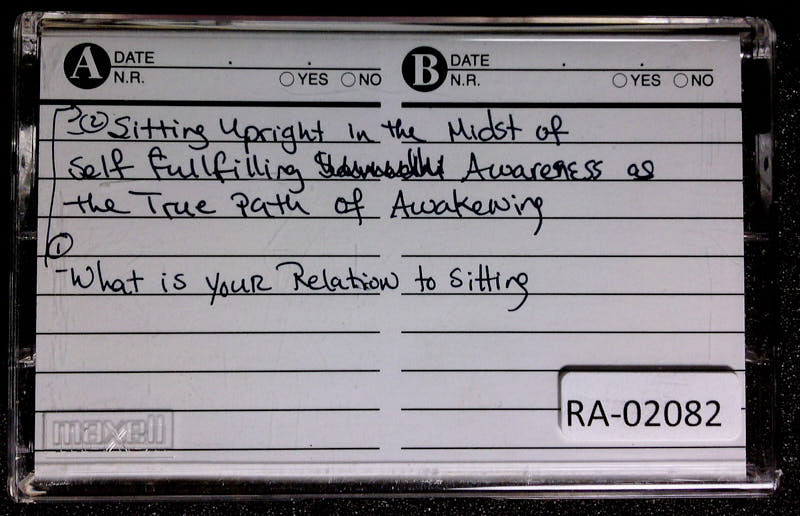 A DATE . . B DATE . .
N.R. YES NO N.R. YES NO
② Sitting Upright in the Midst of
Self Fullfilling Awareness as
the True Path of Awakening
①
- What is your Relation to Sitting
RA-02082
maxell